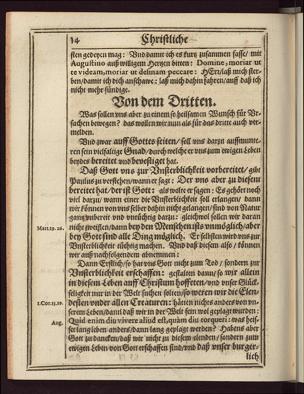 14 Christliche
sten gedeyen mag: Und damit ich es kurtz zusammen fasse/ mit
Augustino auß willigem Hertzen bitten: Domine, moriar ut
te videam, moriar ut desinam peccare: HErr/laß mich ster-
ben/damit ich dich anschawe: laß mich dahin fahren/auff daß ich
nicht mehr sündige.
Von dem Dritten.
Was sollen uns aber zu einem so heilsamen Wunsch für Ur-
sachen bewegen? das wollen wir nun als für das dritte auch ver-
melden.
Und zwar auff Gottes seiten/ soll uns darzu auffmunte-
ren sein vielfaltige Gnad/durch welche er uns zum ewigen Leben
beydes bereitet und bevestiget hat.
Daß Gott uns zur Unsterblichkeit vorbereitet/ gibt
Paulus zu verstehen/wann er sagt: Der uns aber zu diesem
bereitet hat/der ist Gott: als wolte er sagen: Es gehört noch
viel darzu/ wann einer die Unsterblichkeit soll erlangen/ dann
wir können von uns selber dahin nicht gelangen/ sind von Natur
gantz unbereit und untüchtig darzu: gleichwol sollen wir daran
nicht zweiflen/dann bey den Menschen ists unmöglich/aber
Matt.19. 26.
bey Gott sind alle Ding müglich. Er selbst wird uns zur
Unsterblichkeit tüchtig machen. Und daß diesem also/ können
wir auß nachfolgendem abnemmen:
Dann Erstlich/ so hat uns Gott nicht zum Tod/ sondern zur
Unsterblichkeit erschaffen: gestalten dann/ so wir allein
in diesem Leben auff Christum hoffeten/und unsre Glück-
seligkeit nur in der Welt suchen solten/so weren wir die Elen-
1.Cor.15.19.
desten under allen Creaturen: hätten nichts anders von un-
serem Leben/dann daß wir in der Welt sein wol geplagt wurden:
Aug.
Quid enim diu vivere aliud est, quàm diu torqueri: was heis-
set lang leben anders/dann lang geplagt werden? Habens aber
Gott zu dancken/daß wir nicht zu diesem elenden/ sondern zum
ewigen Leben/von Gott erschaffen sind/und daß unser bürger-
lich